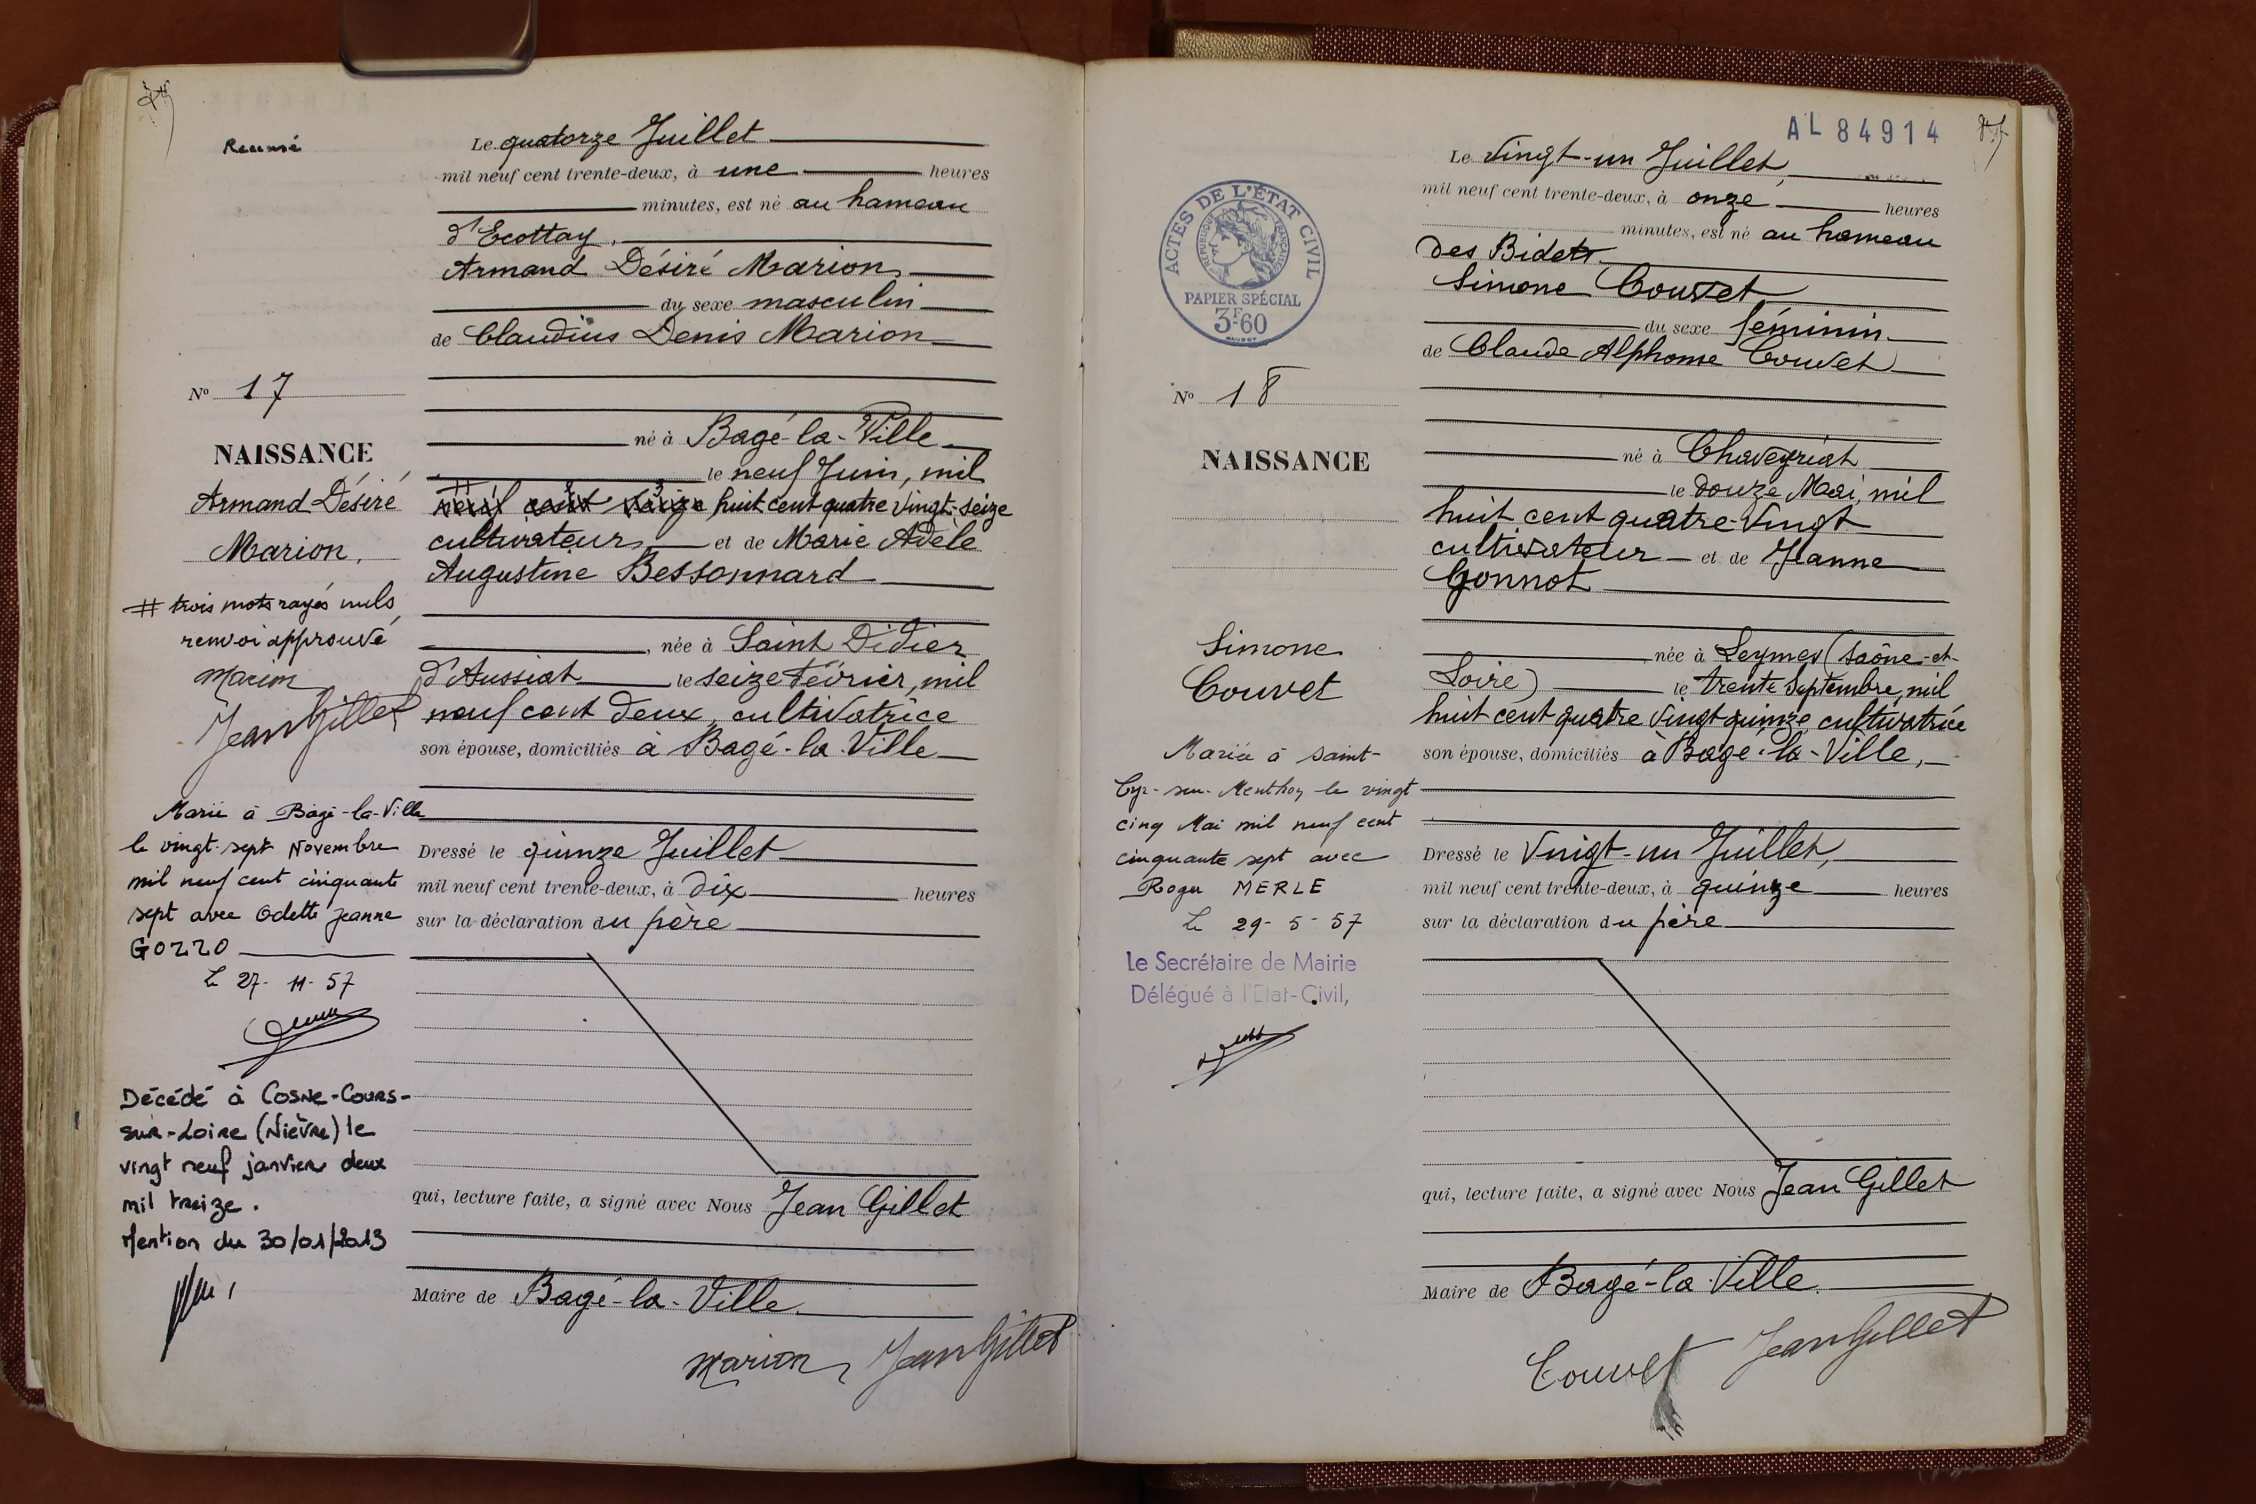 Recensé
Le quatorze Juillet
mil neuf cent trente-deux, à une heures
minutes, est né au hameau
d'Ecottay,
Armand Désiré Marion
du sexe masculin
de Claudius Denis Marion
né à Bagé-la-Ville
le neuf Juin, mil
neuf cent seize huit cent quatre vingt-seize
cultivateur et de Marie Adèle
Augustine Bessonnard
née à Saint Didier
d'Aussiat le seize Février, mil
neuf cent deux, cultivatrice
son épouse, domiciliés à Bagé-la-Ville
Dressé le quinze Juillet
mil neuf cent trente-deux, à dix heures
sur la déclaration du père
qui, lecture faite, a signé avec Nous Jean Gillet
Maire de Bagé-la-Ville.
Marion Jean Gillet
No 17
NAISSANCE
Armand Désiré
Marion.
# trois mots rayés nuls,
renvoi approuvé
Marion
Jean Gillet
Marié à Bâgé-la-Ville
le vingt-sept Novembre
mil neuf cent cinquante
sept avec Odette Jeanne
GOZZO
Le 27-11-57
Décédé à Cosne-Cours-
sur-Loire (Nièvre) le
vingt neuf janvier deux
mil treize.
Mention du 30/01/2013
AL 84914
Le Vingt-un Juillet,
mil neuf cent trente-deux, à onze heures
minutes, est né au hameau
des Bidets
Simone Couvet
du sexe féminin
de Claude Alphonse Couvet
né à Chaveyriat
le douze Mai, mil
huit cent quatre-Vingt
cultivateur et de Jeanne
Gonnot
née à Leynes (Saône-et-
Loire) le trente Septembre, mil
huit cent quatre Vingt quinze, cultivatrice
son épouse, domiciliés à Bagé-la-Ville,
Dressé le Vingt-un Juillet,
mil neuf cent trente-deux, à quinze heures
sur la déclaration du père
qui, lecture faite, a signé avec Nous Jean Gillet
Maire de Bagé-la-Ville.
Couvet Jean Gillet
ACTES DE L'ÉTAT CIVIL
REPUBLIQUE FRANÇAISE
PAPIER SPÉCIAL
3F60
No 18
NAISSANCE
Simone
Couvet
Mariée à Saint-
Cyr-sur-Menthon le vingt
cinq Mai mil neuf cent
cinquante sept avec
Roger MERLE
Le 29-5-57
Le Secrétaire de Mairie
Délégué à l'Etat-Civil,